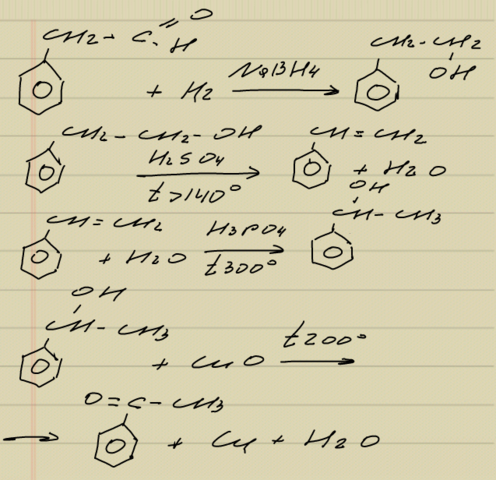 CH2 - C = O
H
+ H2 NaBH4 CH2 - CH2
OH
CH2 - CH2 - OH H2SO4 t>140° CH = CH2 + H2O
CH = CH2 + H2O H3PO4 t300° OH
CH - CH3
OH
CH - CH3 + CuO t200°
O = C - CH3 + Cu + H2O